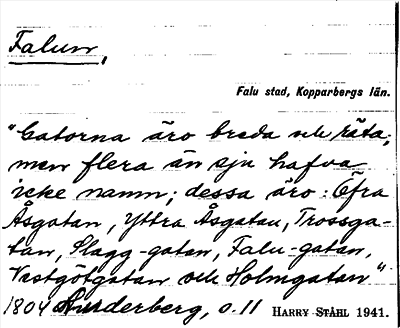 Falun,
Falu stad, Kopparbergs län.
"Gatorna äro breda och räta;
men flera än sju hafva
icke namn; dessa äro: Öfra
Åsgatan, Yttra Åsgatan, Trossga-
tan, Slagg-gatan, Falu-gatan,
Vestgötgatan och Holmgatan"
1804 o. 11 HARRY STÅHL 1941.